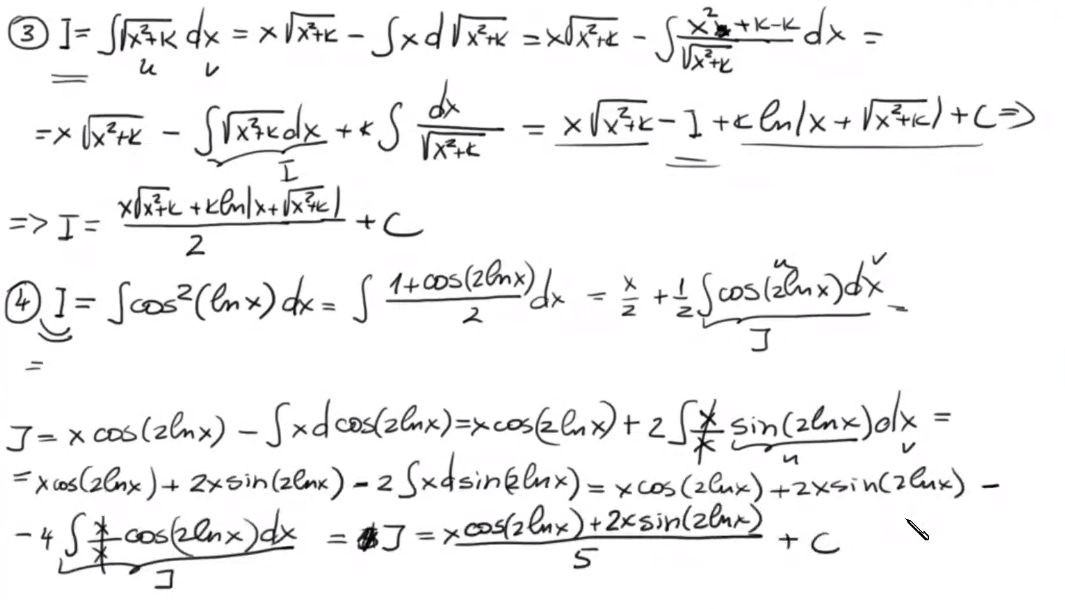 ③ I = ∫√(x²+k) dx = x√(x²+k) − ∫x d√(x²+k) = x√(x²+k) − ∫ (x²+k−k)/√(x²+k) dx =
u v
= x√(x²+k) − ∫√(x²+k) dx + k ∫ dx/√(x²+k) = x√(x²+k) − I + k ln|x + √(x²+k)| + C ⇒
I
⇒ I = (x√(x²+k) + k ln|x+√(x²+k)|)/2 + C
④ I = ∫cos²(ln x) dx = ∫ (1+cos(2lnx))/2 dx = x/2 + 1/2 ∫cos(2lnx)dx =
u v
J
=
J = x cos(2lnx) − ∫x d cos(2lnx) = x cos(2lnx) + 2 ∫ x/x sin(2lnx) dx =
u v
= x cos(2lnx) + 2x sin(2lnx) − 2 ∫x d sin(2lnx) = x cos(2lnx) + 2x sin(2lnx) −
− 4 ∫ x/x cos(2lnx) dx = J = (x cos(2lnx) + 2x sin(2lnx))/5 + C
J